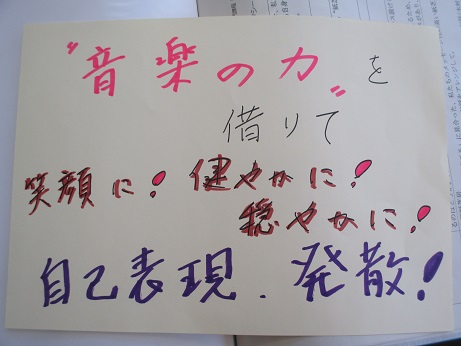 〝音楽の力〟を
借りて
笑顔に! 健やかに!
穏やかに!
自己表現、発散!